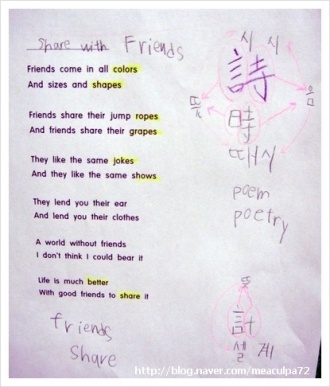 Share with Friends
Friends come in all colors
And sizes and shapes
Friends share their jump ropes
And friends share their grapes
They like the same jokes
And they like the same shows
They lend you their ear
And lend you their clothes
A world without friends
I don't think I could bear it
Life is much better
With good friends to share it
friends
share
시 시
詩
뜻
음
時
때 시
poem
poetry
計
셀 계
http://blog.naver.com/meaculpa72